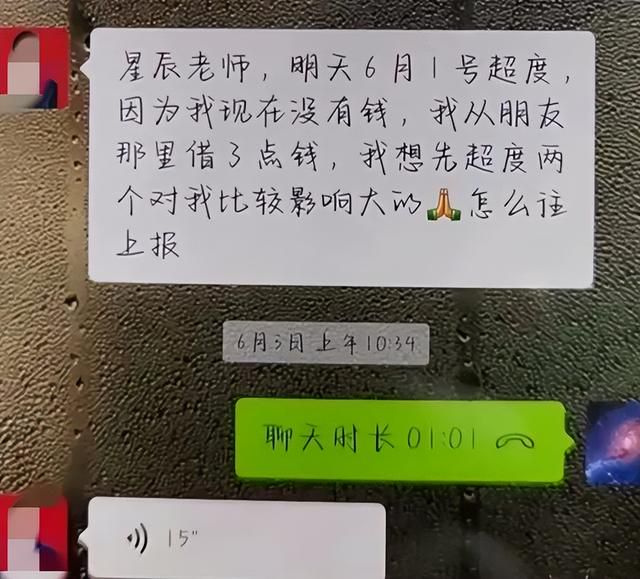 星辰老师，明天6月1号超度，
因为我现在没有钱，我从朋友
那里借了点钱，我想先超度两
个对我比较影响大的🙏怎么往
上报
6月3日 上午10:34
聊天时长 01:01
15"